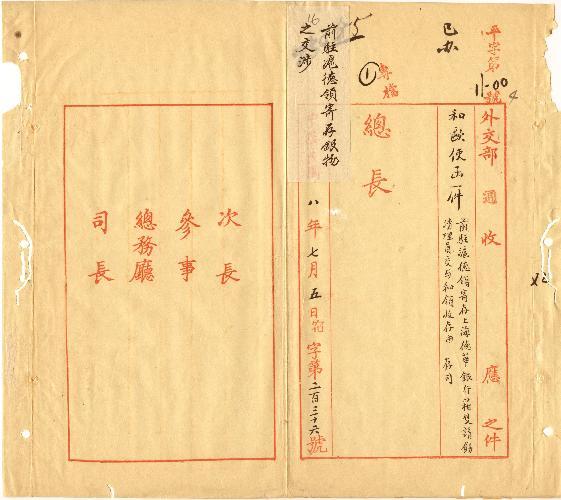 平字第11-004號
已办
外交部 通 收 應 之件
和歐使函一件
前駐滬德領寄存上海德華銀行箱隻請飭
清理員交与和領收存由 存司
總長
16
前駐滬德領寄存銀物
之交涉
八年七月五日
字第二百三十六號
次長
參事
總務廳
司長